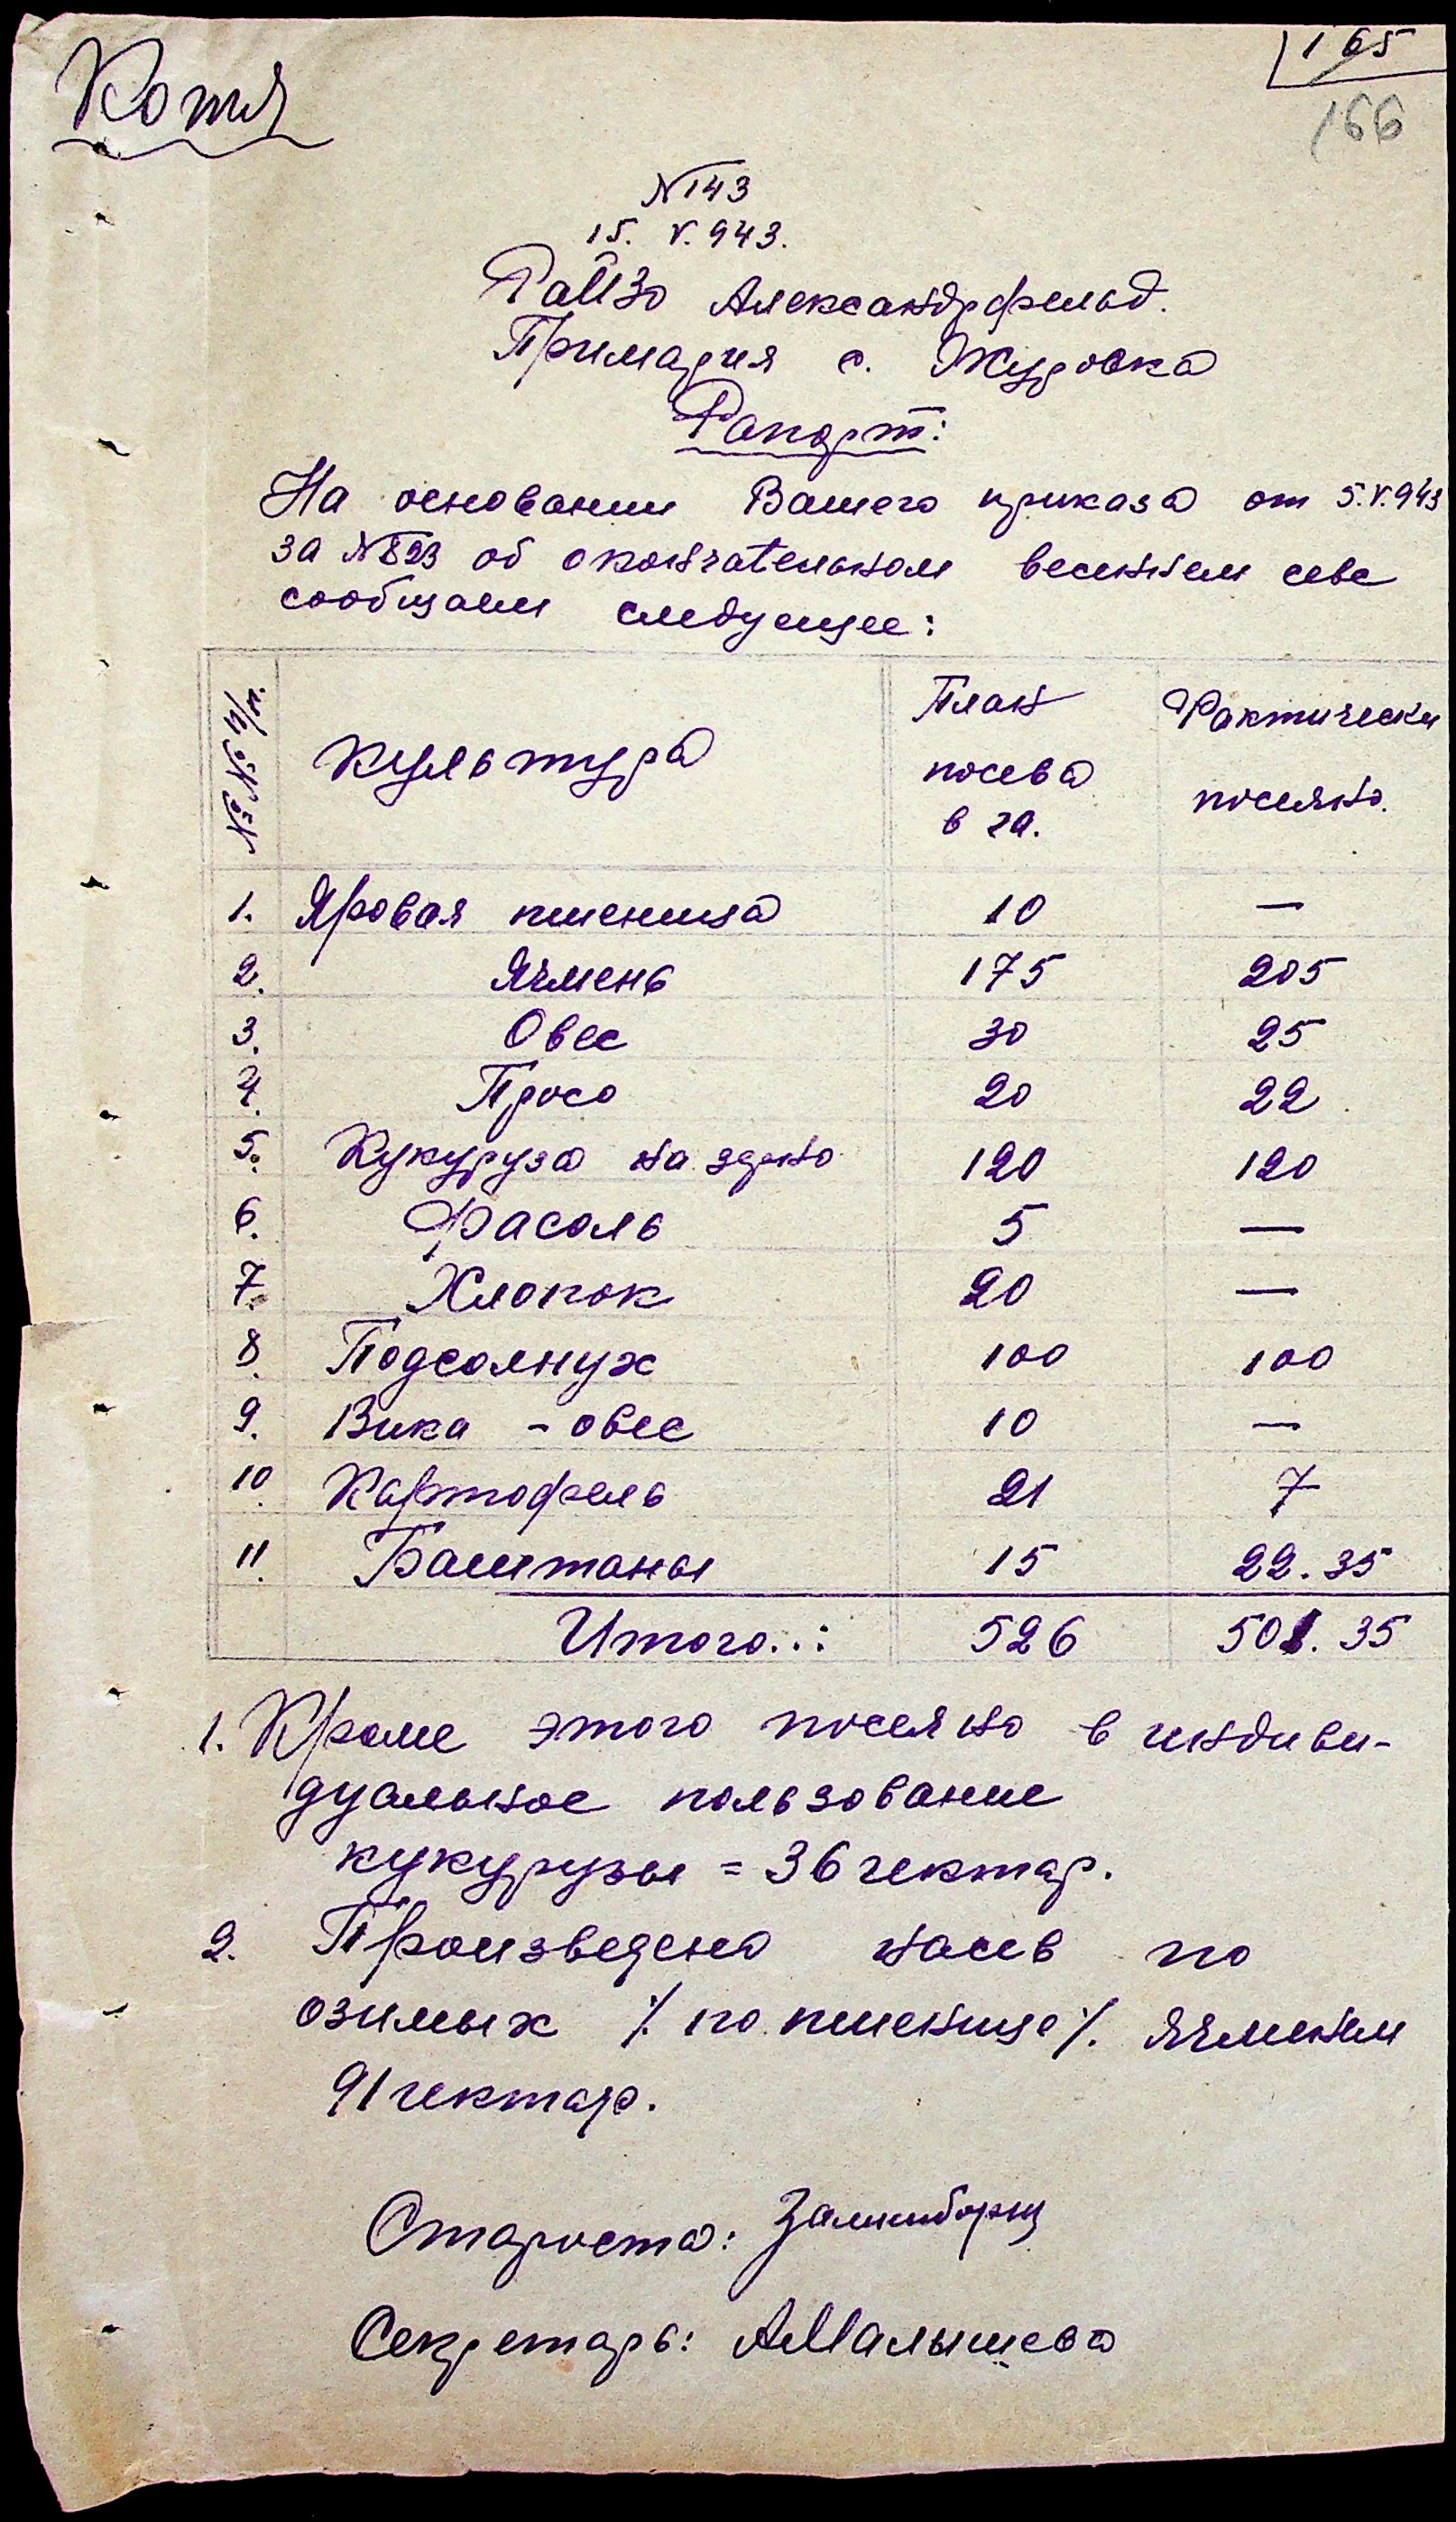 Копия
165
166
№ 143
15. V. 943.
РайЗо Александрфельд.
Примария с. Журовка
Рапорт:
На основании Вашего приказа от 5.V.943
за № 823 об окончательном весеннем севе
сообщаем следующее:
№ № п/п. Культура План посева в га. Фактически посеяно.
1. Яровая пшеница 10 —
2. Ячмень 175 205
3. Овес 30 25
4. Просо 20 22
5. Кукуруза на зерно 120 120
6. Фасоль 5 —
7. Хлопок 20 —
8. Подсолнух 100 100
9. Вика - овес 10 —
10. Картофель 21 7
11. Баштаны 15 22.35
Итого..: 526 501.35
1. Кроме этого посеяно в индиви-
дуальное пользование
кукурузы = 36 гектар.
2. Произведено насев по
озимых /. по пшенице /. ячменем
91 гектар.
Староста:
Секретарь: АМалышева